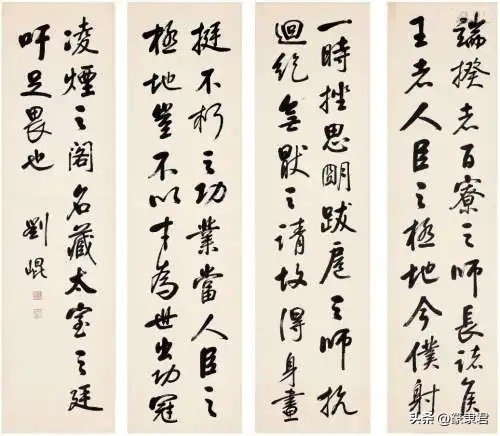 端揆者百寮之師長諸侯
王者人臣之極地今僕射
一時挫思明跋扈之師抗
迴紇無厭之請故得身畫
挺不朽之功業當人臣之
極地豈不以才為世出功冠
凌煙之閣名藏太室之廷
吁足畏也 劉崐
头条 @篆隶君